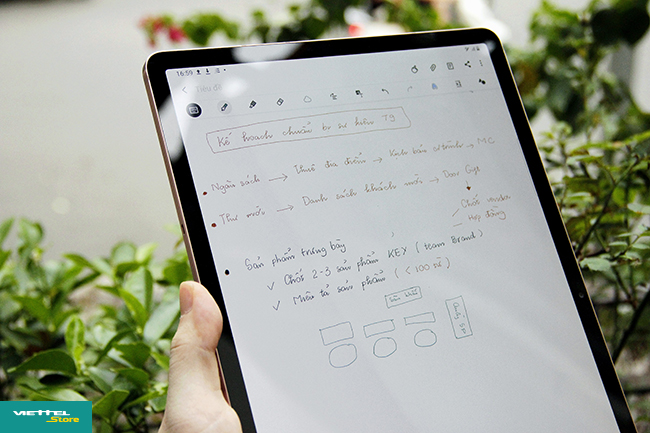 16:59
Tiêu đề
Kế hoạch chuẩn bị sự kiện T9
Ngân sách → Thuê địa điểm → Kịch bản ctrình → MC
Thư mời → Danh sách khách mời → Door Gift
Chốt vendor
Hợp đồng
Sản phẩm trưng bày
✓ Chốt 2-3 sản phẩm KEY (team Brand)
✓ Miêu tả sản phẩm (< 100 từ)
sân khấu
Quầy
VIETTEL
Store